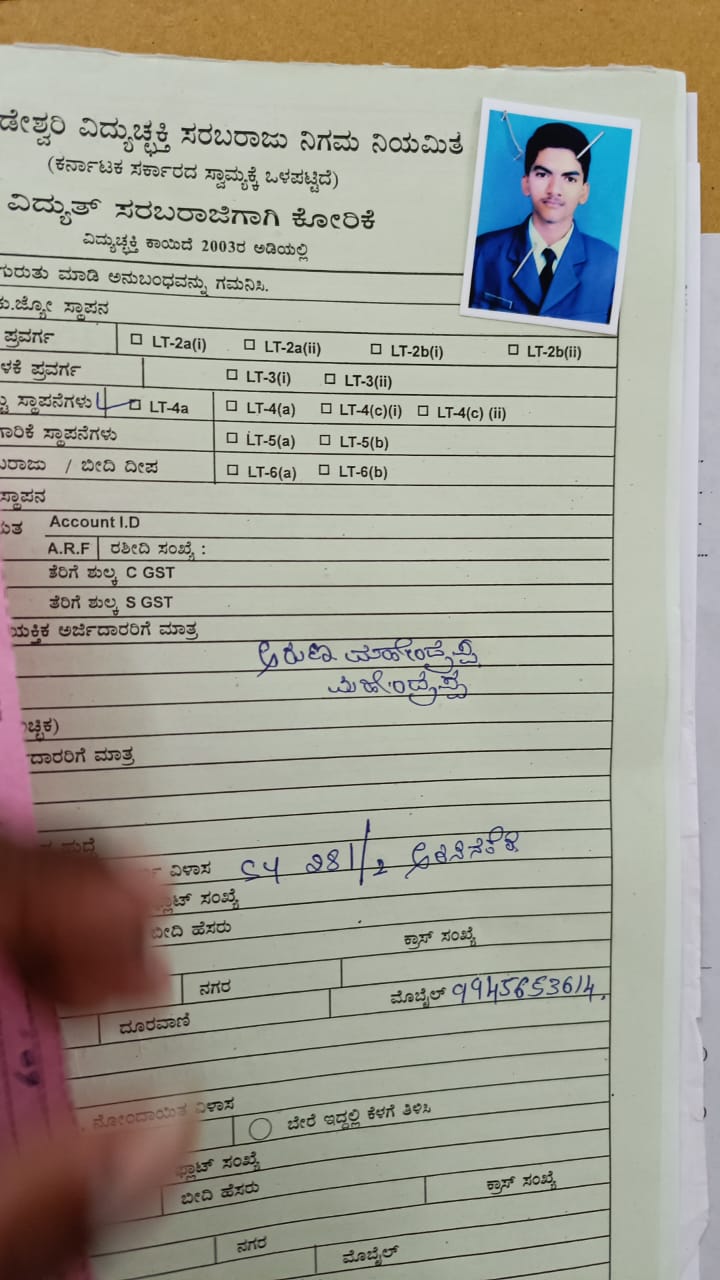 ಡೇಶ್ವರಿ ವಿದ್ಯುಚ್ಛಕ್ತಿ ಸರಬರಾಜು ನಿಗಮ ನಿಯಮಿತ
(ಕರ್ನಾಟಕ ಸರ್ಕಾರದ ಸ್ವಾಮ್ಯಕ್ಕೆ ಒಳಪಟ್ಟಿದೆ)
ವಿದ್ಯುತ್ ಸರಬರಾಜಿಗಾಗಿ ಕೋರಿಕೆ
ವಿದ್ಯುಚ್ಛಕ್ತಿ ಕಾಯಿದೆ 2003ರ ಅಡಿಯಲ್ಲಿ
ಗುರುತು ಮಾಡಿ ಅನುಬಂಧವನ್ನು ಗಮನಿಸಿ.
ಕು.ಜ್ಯೋ ಸ್ಥಾಪನ
ಪ್ರವರ್ಗ LT-2a(i) LT-2a(ii) LT-2b(i) LT-2b(ii)
ಳಕೆ ಪ್ರವರ್ಗ LT-3(i) LT-3(ii)
ಸ್ಥಾಪನೆಗಳು LT-4a LT-4(a) LT-4(c)(i) LT-4(c) (ii)
ಗಾರಿಕೆ ಸ್ಥಾಪನೆಗಳು LT-5(a) LT-5(b)
ಬರಾಜು / ಬೀದಿ ದೀಪ LT-6(a) LT-6(b)
ಸ್ಥಾಪನ
Account I.D
A.R.F ರಶೀದಿ ಸಂಖ್ಯೆ :
ತೆರಿಗೆ ಶುಲ್ಕ C GST
ತೆರಿಗೆ ಶುಲ್ಕ S GST
ಯಕ್ತಿಕ ಅರ್ಜಿದಾರರಿಗೆ ಮಾತ್ರ
ಅರುಣ ಮಹೇಂದ್ರಪ್ಪ
ಮಹೇಂದ್ರಪ್ಪ
ಚ್ಛಿಕ)
ದಾರರಿಗೆ ಮಾತ್ರ
ವಿಳಾಸ SY 281/2
ಪ್ಲಾಟ್ ಸಂಖ್ಯೆ
ಬೀದಿ ಹೆಸರು ಕ್ರಾಸ್ ಸಂಖ್ಯೆ
ನಗರ ಮೊಬೈಲ್ 9945653614.
ದೂರವಾಣಿ
ನೋಂದಾಯಿತ ವಿಳಾಸ
ಬೇರೆ ಇದ್ದಲ್ಲಿ ಕೆಳಗೆ ತಿಳಿಸಿ
ಪ್ಲಾಟ್ ಸಂಖ್ಯೆ
ಬೀದಿ ಹೆಸರು ಕ್ರಾಸ್ ಸಂಖ್ಯೆ
ನಗರ ಮೊಬೈಲ್